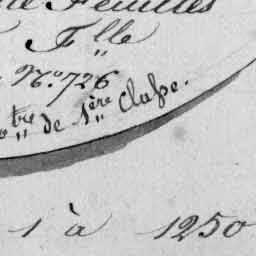 Feuilles
F.lle
N.o 726
tre de 1ère Classe.
1 à 1250